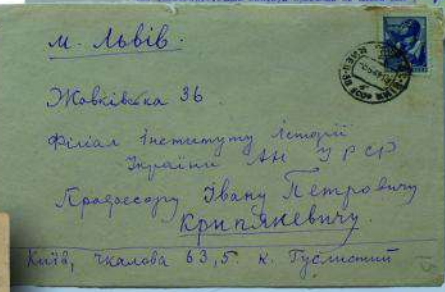 м. Львів.
Жовківська 36
Філіал Інституту Історії
України АН УРСР
Професору Івану Петровичу
Крип'якевичу.
Київ, Чкалова 63, 5. К. Гуслистий